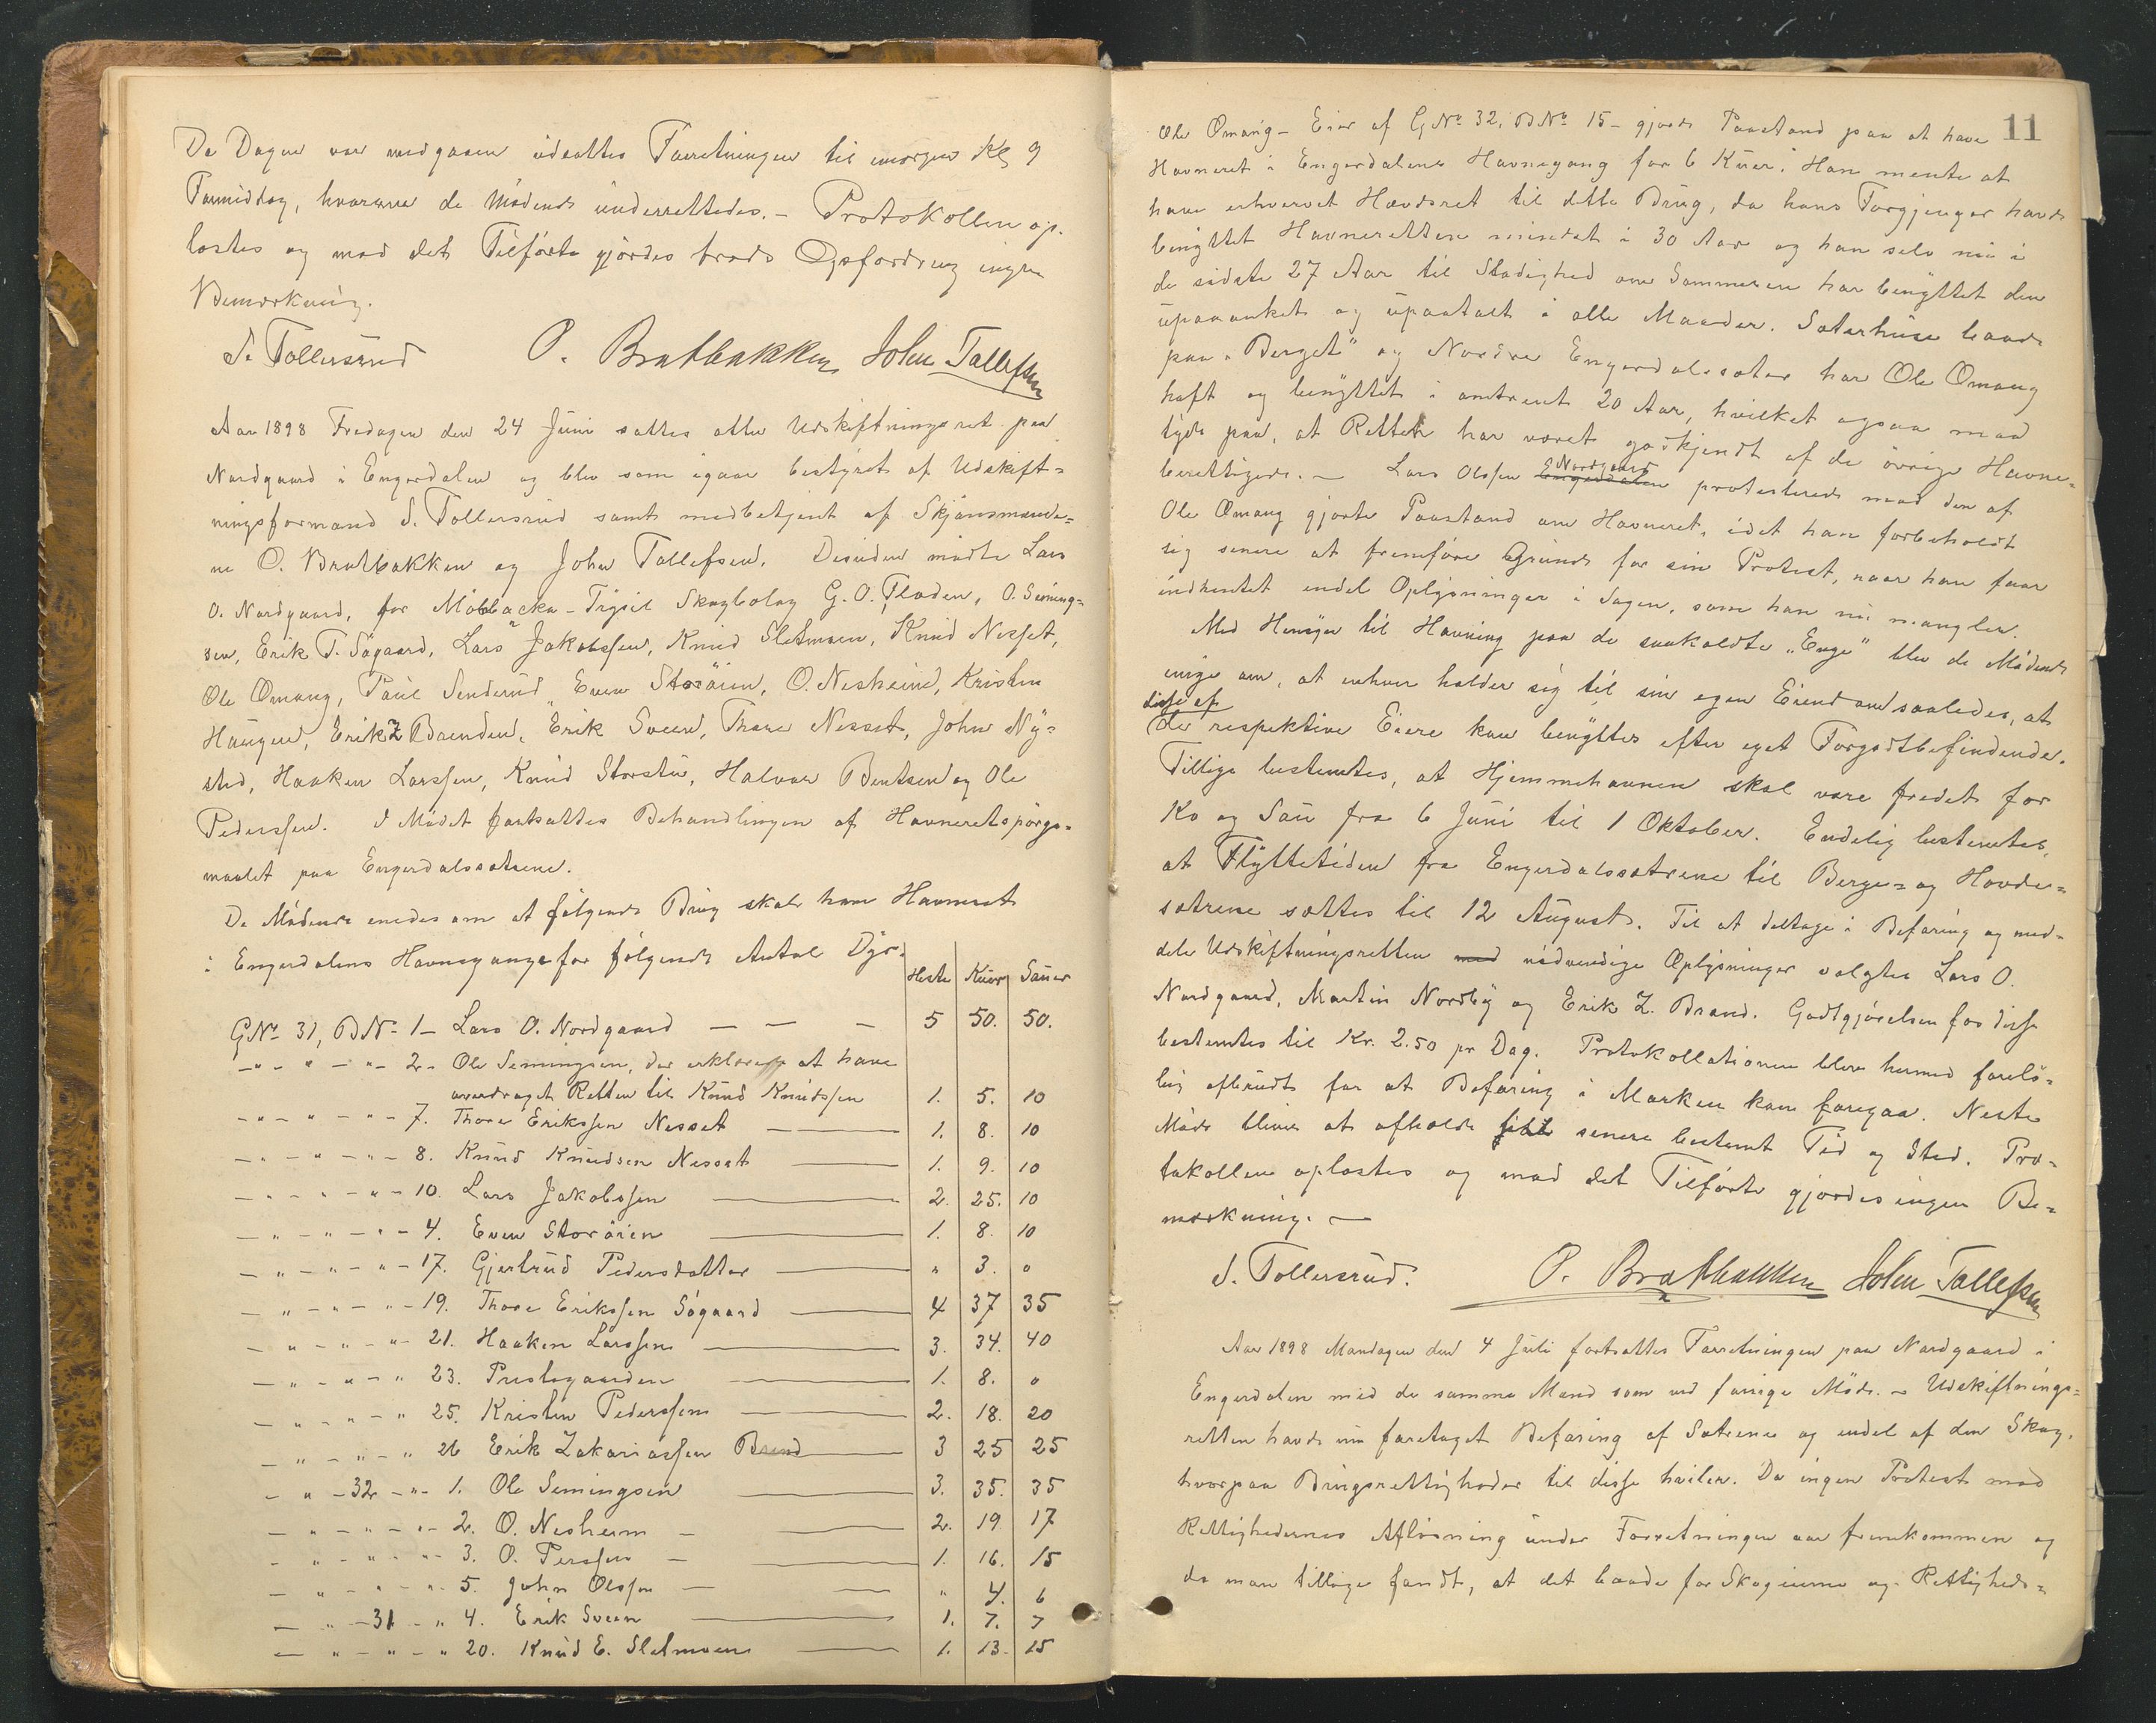 Da Dagen var medgaaen udsattes Forretningen til imorgen Kl 9
Formiddag, hvorom de Mødende underrettedes. – Protokollen op-
læstes og mod det Tilførte gjordes trods Opfordring ingen
Bemærkning.
S. Tollersrud O. Bratbakken John Tollefsen
Aar 1898 Fredagen den 24 Juni sattes atter Udskiftningsret paa
Nordgaard i Engerdalen og blev som igaar bestyret af Udskift=
ningsformand S. Tollersrud samt medbetjent af Skjønsmænde=
ne O. Bratbakken og John Tollefsen. Desuden mødte Lars
O. Nordgaard, for Möllbacka-Trysil Skogbolag G. O. Floden, O. Seming=
sen, Erik T. Søgaard, Lars Jakobssen, Knud Sletmoen, Knud Nesset,
Ole Omang, Paul Senderud, Even Storøien, O. Nesheim, Kristen
Haugen, Erik Z Brænden, Erik Sveen, Thore Nesset, John Ny=
sted, Haaken Larssen, Knud Storstu, Halvor Bentsen og Ole
Pederssen. I Mødet fortsattes Behandlingen af Havneretspørgs=
maalet paa Engerdalssætrene.
De Mødende enedes om at følgende Brug skal have Havneret
i Engerdalens Havnegang for følgende Antal Dyr.
Heste Kuer Sauer
GNo 31, BNo 1 – Lars O. Nordgaard — — — 5 50. 50.
– " – " – " – 2 – Ole Semingsen, der erklærede at have
overdraget Retten til Knud Knudssen 1. 5. 10
– " – " – " – 7. Thore Erikssen Nesset — 1. 8. 10
– " – " – " – 8. Knud Knudsen Nesset — 1. 9. 10
– " – " – " – 10. Lars Jakobssen — 2. 25. 10
– " – " – " – 4. Even Storøien — 1. 8. 10
– " – " – " – 17. Gjertrud Pedersdatter — " 3. 0
– " – " – " – 19. Thore Erikssen Søgaard — 4 37 35
– " – " – " – 21. Haaken Larssen — 3. 34. 40
– " – " – " 23. Prestegaarden — 1. 8. 0
– " – " – " 25. Kristen Pederssen — 2. 18. 20
– " – " – " 26 Erik Zakariassen Brend — 3 25 25
– " – 32 – " – 1. Ole Semingsen — 3. 35. 35
– " – " – " – 2. O. Nesheim — 2. 19. 17
– " – " – " – 3. O. Perssen — 1. 16. 15
– " – " – " – 5. John Olssen — " 4. 6
– " – 31 – " 4. Erik Sveen — 1. 7. 7
– " – " – " 20. Knud E. Sletmoen — 1. 13. 15
11
Ole Omang – Eier af GNo 32, BNo 15 – gjorde Paastand paa at have
Havneret i Engerdalens Havnegang for 6 Kuer. Han mente at
have erhvervet Hævdsret til dette Brug, da hans Forgjænger havde
benyttet Havneretten mindst i 30 Aar og han selv nu i
de sidste 27 Aar til Stadighed om Sommeren har benyttet den
upaaanket og upaatalt i alle Maader. Sæterhuse baade
paa „Berget" og Nordre Engerdalssæter har Ole Omang
haft og benyttet i omtrent 20 Aar, hvilket ogsaa maa
tyde paa, at Retten har været godkjendt af de øvrige Havne=
berettigede. – Lars Olssen Engerdalen Nordgaard protesterede mod den af
Ole Omang gjorte Paastand om Havneret, idet han forbeholdt
sig senere at fremføre Grunde for sin Protest, naar han faar
indhentet endel Oplysninger i Sagen, som han nu mangler.
Med Hensyn til Havning paa de saakaldte „Enge" blev de Mødende
enige om, at enhver holder sig til sin egen Eiendom saaledes, at
disse af
de respektive Eiere kan benyttes efter eget Forgodtbefindende.
Tillige bestemtes, at Hjemmehavnen skal være fredet for
Ko og Sau fra 6 Juni til 1 Oktober. Endelig bestemtes,
at Flyttetiden fra Engerdalssætrene til Berge= og Hovde=
sætrene sættes til 12 August. Til at deltage i Befaring og med=
dele Udskiftningsretten med nødvendige Oplysninger valgtes Lars O.
Nordgaard, Martin Nordby og Erik Z. Brænd. Godtgjørelsen for disse
bestemtes til Kr. 2.50 pr Dag. Protokollationen blev hermed forelø=
big afbrudt for at Befaring i Marken kan foregaa. Neste
Møde bliver at afholde til senere bestemt Tid og Sted. Pro=
tokollen oplæstes og mod det Tilførte gjordes ingen Be=
mærkning. —
S. Tollersrud. O. Bratbakken John Tollefsen
Aar 1898 Mandagen den 4 Juli fortsattes Forretningen paa Nordgaard i
Engerdalen med de samme Mænd som ved forrige Møde. – Udskiftnings=
retten havde nu foretaget Befaring af Sætrene og endel af den Skog,
hvorpaa Brugsrettigheder til disse hviler. Da ingen Protest mod
Rettighedernes Afløsning under Forretningen var fremkommen og
da man tillige fandt, at det baade for Skogeierne og Rettigheds=